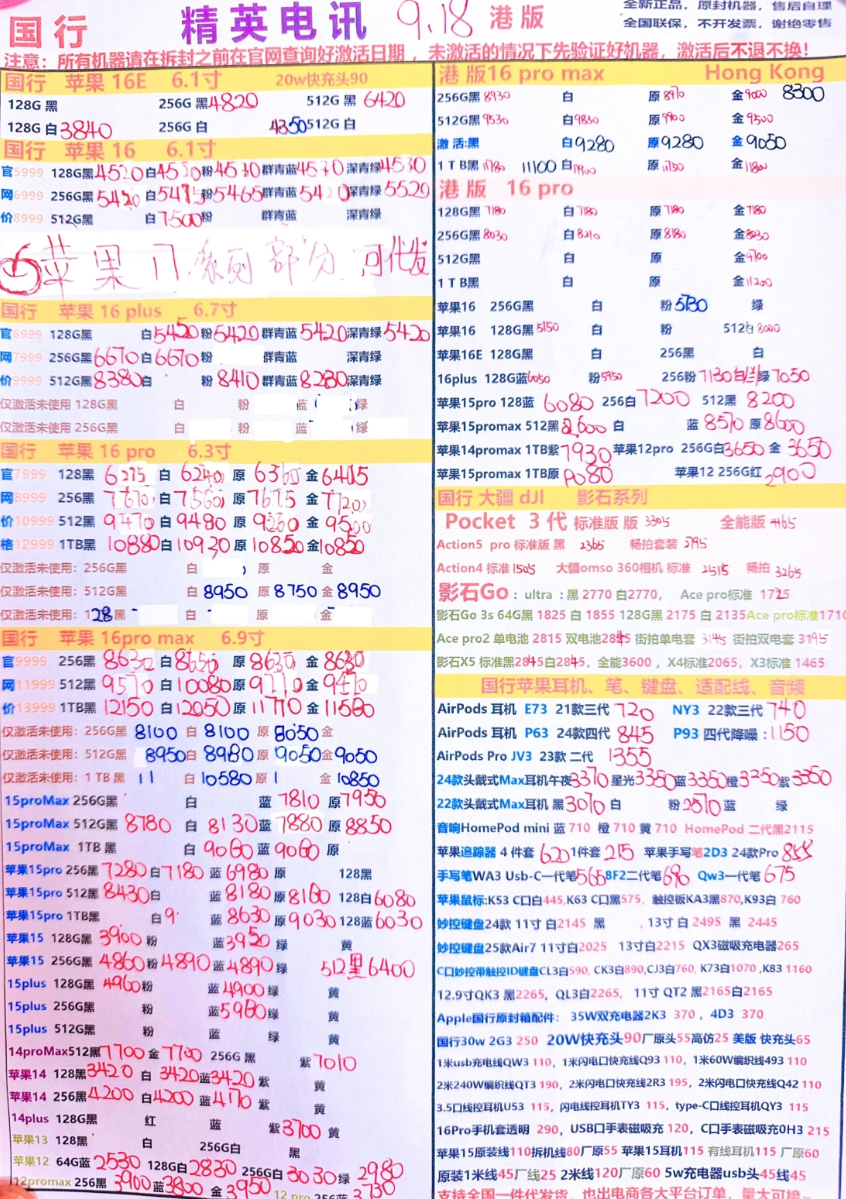 国行 精英电讯 9.18 港版
全新正品，原封机器，售后自理
全国联保，不开发票，谢绝零售
注意：所有机器请在拆封之前在官网查询好激活日期，未激活的情况下先验证好机器，激活后不退不换！
国行 苹果 16E 6.1寸 20w快充头90
128G 黑 256G 黑4820 512G 黑 6420
128G 白3840 256G 白 4350 512G 白
国行 苹果 16 6.1寸
官5999 128G黑4520 白4520 粉4530 群青蓝4530 深青绿4530
网6999 256G黑5420 白5415 粉5465 群青蓝5420 深青绿5520
价8999 512G黑 白7500 粉 群青蓝 深青绿
苹果17系列部分可代发
国行 苹果 16 plus 6.7寸
官6999 128G黑 白5450 粉5420 群青蓝5420 深青绿5420
网7999 256G黑6670 白6670 粉 群青蓝 深青绿
价9999 512G黑8380 白 粉8410 群青蓝8280 深青绿
仅激活未使用 128G黑 白 粉 蓝 绿
仅激活未使用 256G黑 白 粉 蓝 绿
国行 苹果 16 pro 6.3寸
官7999 128黑 6275 白 6240 原 6360 金 6405
网8999 256黑 7670 白 7560 原 7675 金 7720
价10999 512黑 9470 白 9480 原 9260 金 9500
格12999 1TB黑 10880 白10930 原10850 金10850
仅激活未使用：256G黑 白 原 金
仅激活未使用：512G黑 白 8950 原 8750 金 8950
仅激活未使用：128黑 白 原 金
国行 苹果 16pro max 6.9寸
官9999 256黑 8630 白8650 原 8630 金 8680
网11999 512黑 9570 白10080 原9770 金9470
价13999 1TB黑 12150 白12050 原11770 金11580
仅激活未使用：256G黑 8100 白 8100 原 8050 金
仅激活未使用：512G黑 8950 白 8980 原 9050 金9050
仅激活未使用：1 TB黑 11 白 10580 原 1 金 10850
15proMax 256G黑 白 蓝 7810 原7950
15proMax 512G黑 8780 白 8130 蓝7880 原 8850
15proMax 1TB黑 白 9080 蓝 9080 原
苹果15pro 256黑 7280 白7180 蓝 6980 原 128黑
苹果15pro 512黑8430 白 蓝 8180 原8180 128白6080
苹果15pro 1TB黑 白9 蓝 8630 原9030 128蓝6030
苹果15 128G黑 3900 粉 蓝3950 绿 黄
苹果15 256G黑 4860 粉4890 蓝4890 绿 512黑6400
15plus 128G黑 4960 粉 蓝4900 绿 黄
15plus 256G黑 粉 蓝5980 绿 黄
15plus 512G黑 粉 蓝 绿 黄
14proMax512黑7700 金7700 256G 黑 紫7010
苹果14 128黑3420 白 3420 蓝3420 紫 黄
苹果14 256黑4200 白4200 蓝4170 紫 黄
14plus 128G黑 红 蓝 紫3700 黄
苹果13 128黑 白 256G白 黑
苹果12 64G蓝 2530 128G白2830 256G白3030 绿 2980
12promax 256黑 3900 蓝3800 金 3950 12 pro 256蓝 3730
港版16 pro max Hong Kong
256G黑8930 白 原8970 金9000 8300
512G黑9530 白9830 原9900 金9500
激活:黑 白9280 原9280 金9050
1TB黑11780 11100 白11900 原11750 金11800
港版 16 pro
128G黑 7180 白7180 原7180 金7180
256G黑8030 白8210 原8180 金8030
512G黑 白 原 金9700
1TB黑 白 原 金11200
苹果16 256G黑 白 粉5730 绿
苹果16 128G黑5150 白 粉 512白8000
苹果16E 128G黑 256黑 白
16plus 128G蓝6050 粉5950 256粉7130 白 绿7050
苹果15pro 128蓝 6080 256白7200 512黑 8200
苹果15promax 512黑8600 白 蓝8570 原8600
苹果14promax 1TB紫7930 苹果12pro 256G白3650 金 3650
苹果15promax 1TB原 9080 苹果12 256G红2900
国行 大疆 dJI 影石系列
Pocket 3 代 标准版 版 3305 全能版 4465
Action5 pro 标准版 黑 2365 畅拍套装 2795
Action4 标准1505 大疆omso 360相机 标准 2515 畅拍 3265
影石Go：ultra ：黑 2770 白2770， Ace pro标准 1725
影石Go 3s 64G黑 1825 白 1855 128G黑 2175 白 2135 Ace pro标准1710
Ace pro2 单电池 2815 双电池2845 街拍单电套 3145 街拍双电套 3195
影石X5 标准黑2845白2845，全能3600，X4标准2065，X3标准 1465
国行苹果耳机、笔、键盘、适配线、音频
AirPods 耳机 E73 21款三代 720 NY3 22款三代 740
AirPods 耳机 P63 24款四代 845 P93 四代降噪：1150
AirPods Pro JV3 23款 二代 1355
24款头戴式Max耳机午夜3370 星光3350 蓝3350 橙3250 紫3350
22款头戴式Max耳机 黑3070 白 粉2570 蓝 绿
音响HomePod mini 蓝 710 橙 710 黄 710 HomePod 二代黑2115
苹果追踪器 4 件套 620 1件套 215 苹果手写笔2D3 24款Pro 855
手写笔WA3 Usb-C一代笔565 8F2二代笔690 Qw3一代笔 675
苹果鼠标:K53 C口白445,K63 C口黑575, 触控板KA3黑870,K93白 760
妙控键盘24款 11寸 白2145 黑 ，13寸 白 2495 黑 2445
妙控键盘25款Air7 11寸白2025 13寸白2215 QX3磁吸充电器265
C口妙控带触控ID键盘CL3白590, CK3白890,CJ3白760, K73白1070 ,K83 1160
12.9寸QK3 黑2265， QL3白2265， 11寸 QT2 黑2165白2165
Apple国行原封箱配件： 35W双充电器2K3 370 ，4D3 370
国行30w 2G3 250 20W快充头90厂原头55高仿25 美版 快充头65
1米usb充电线QW3 110，1米闪电口快充线Q93 110，1米60W编织线493 110
2米240W编织线QT3 190，2米闪电口快充线2R3 195，2米闪电口快充线Q42 110
3.5口线控耳机U53 115，闪电线控耳机TY3 115，type-C口线控耳机QY3 115
16Pro手机套透明 290，USB口手表磁吸充 120，C口手表磁吸充0H3 215
苹果15原装线110拆机线80厂原55 苹果15耳机115 有线耳机115 厂原60
原装1米线45厂线25 2米线120厂原60 5w充电器usb头45线45
支持全国一件代发货，也出电商各大平台订单，量大可拼~